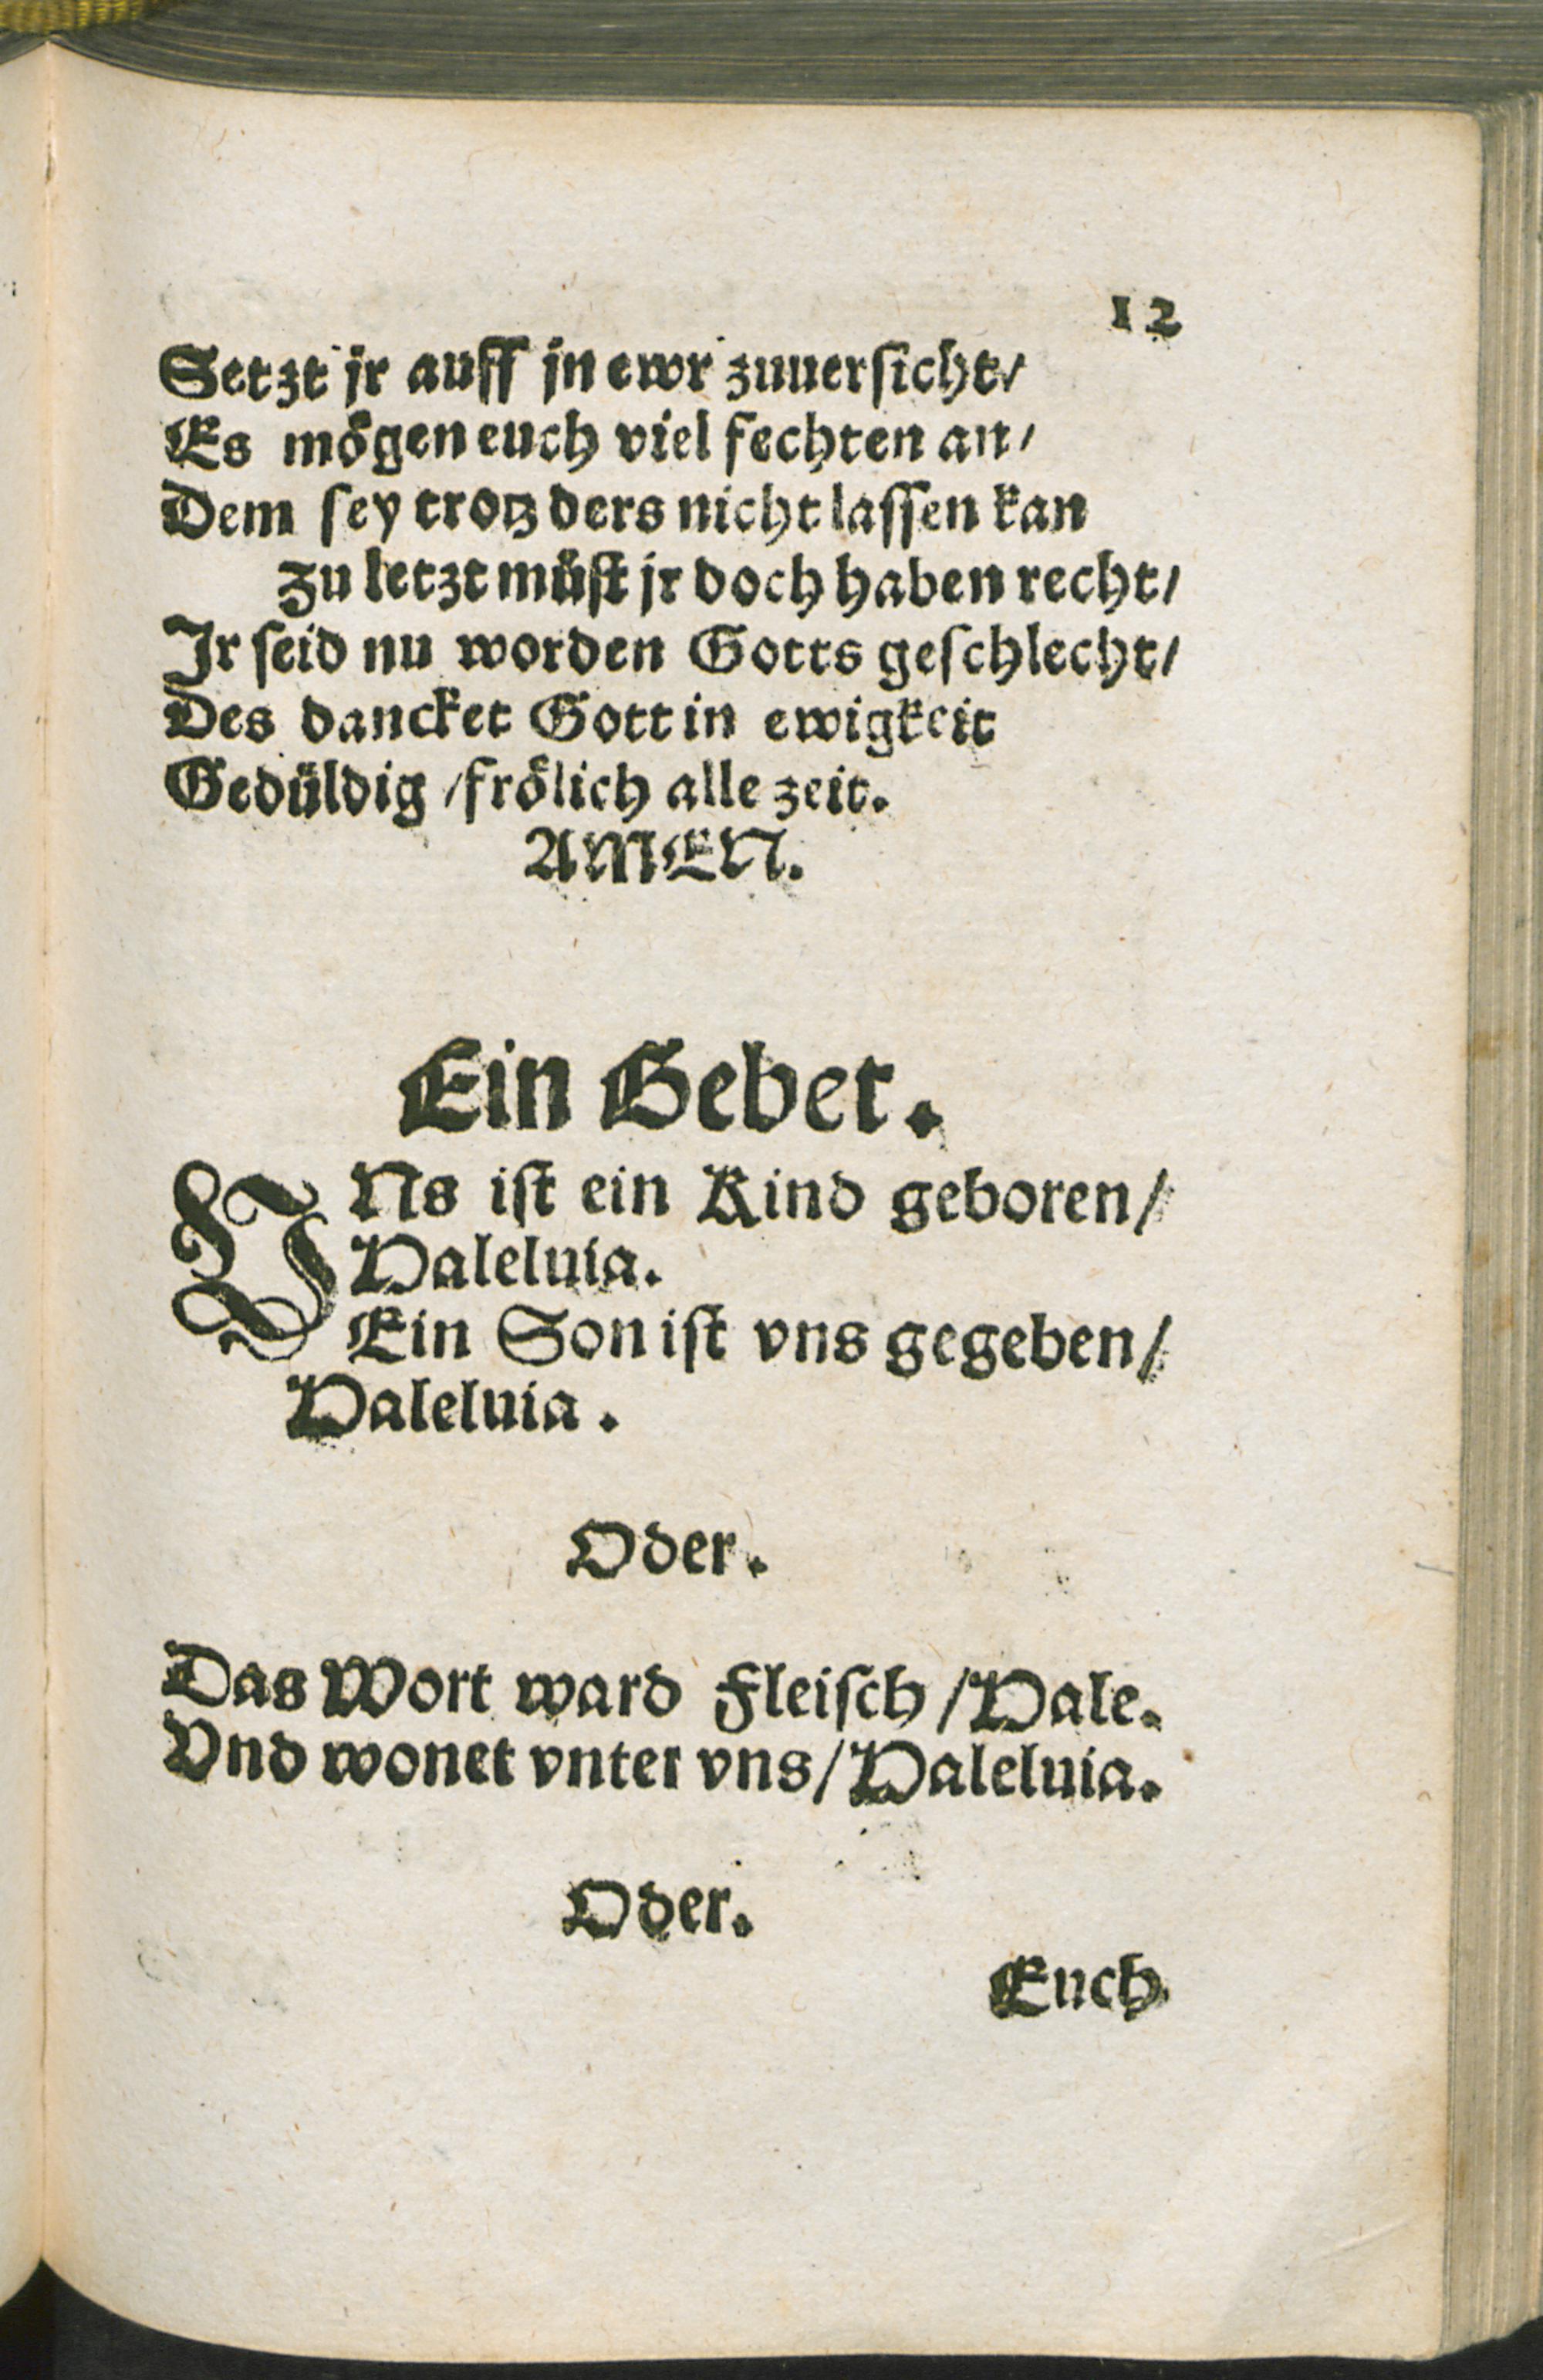 12
Setzt jr auff jn ewr zuuersicht/
Es mögen euch viel fechten an/
Dem sey trotz ders nicht lassen kan
Zu letzt müst jr doch haben recht/
Jr seid nu worden Gotts geschlecht/
Des dancket Gott in ewigkeit
Gedüldig /frölich alle zeit.
AMEN.
Ein Gebet.
VNs ist ein Kind geboren/
Haleluia.
Ein Son ist vns gegeben/
Haleluia.
Oder.
Das Wort ward Fleisch/Hale.
Vnd wonet vnter vns/Haleluia.
Oder.
Euch